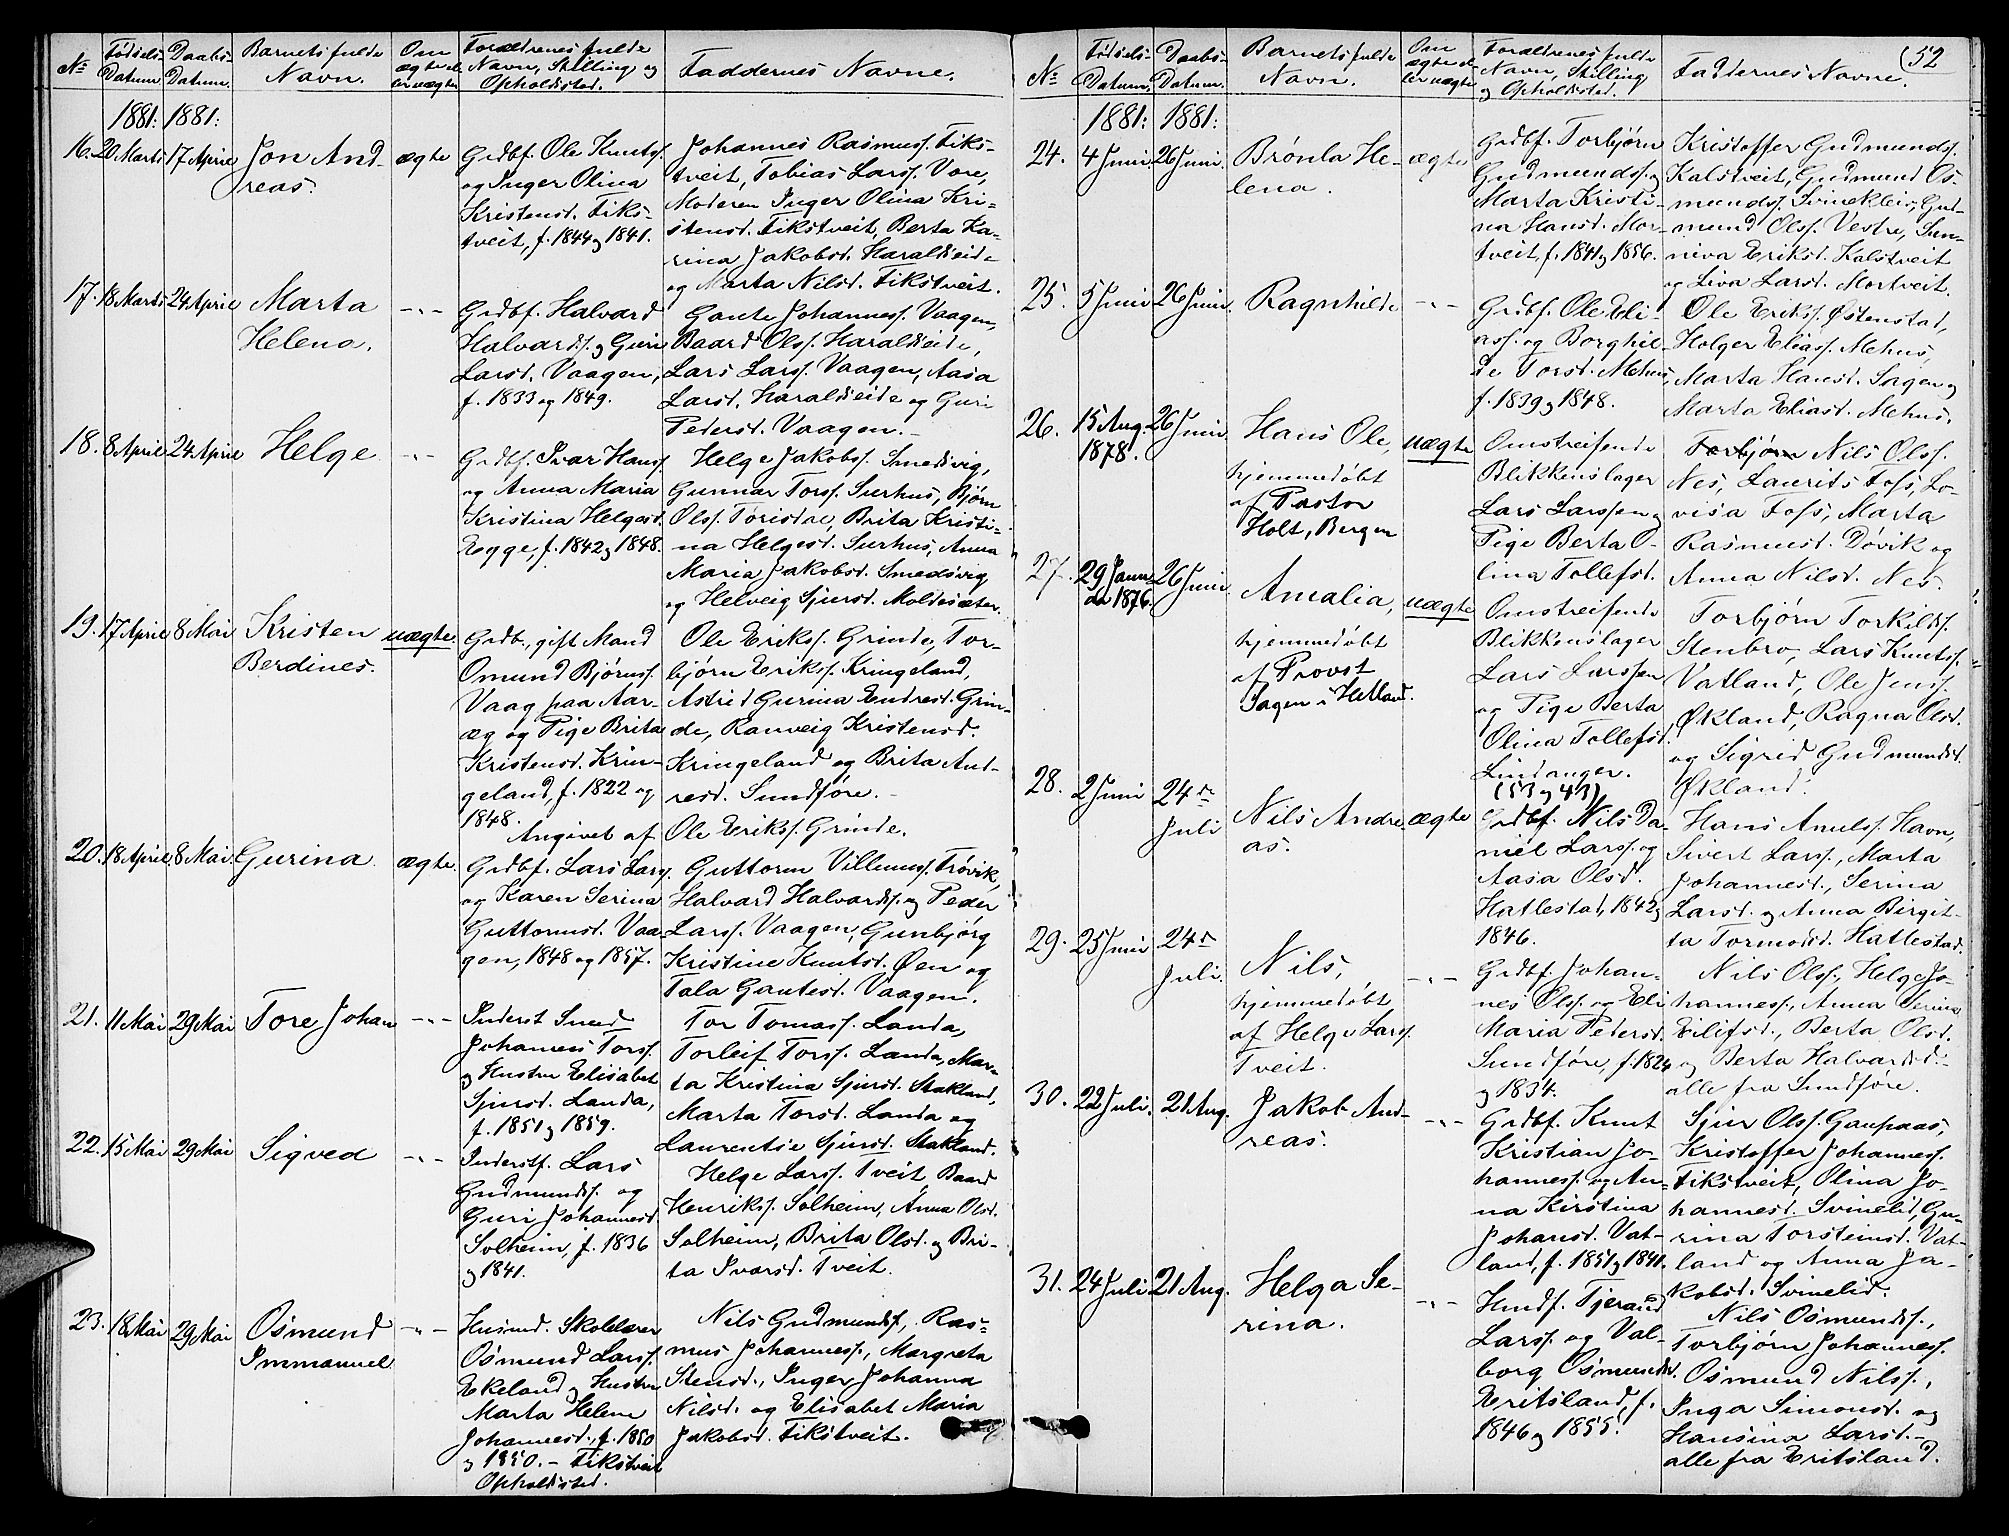 No
Fødsels-
Datum.
Daabs-
Datum.
Barnets fulde
Navn.
Om
ægte el-
ler uægte
Forældrenes fulde
Navn, Stilling og
Opholdssted.
Faddernes Navne.
1881: 1881:
16. 20 Marts 17 April Jon And-
reas.
ægte
Grdbf. Ole Knuts.
og Inger Olina
Kristensd. Fiks-
tveit, f. 1844 og 1841.
Johannes Rasmuss. Fiks-
tveit, Tobias Larss. Vore,
Moderen Inger Olina Kri-
stensd. Fikstveit, Berta Ka-
rina Jakobsd. Haraldseide
og Marta Nilsd. Fikstveit.
17. 18 Marts 24 April Marta
Helena.
-"-
Grdbf. Halvard
Halvards. og Guri
Larsd. Vaagen,
f. 1833 og 1849.
Gaute Johanness. Vaagen,
Baard Olss. Haraldseide,
Lars Larss. Vaagen, Aasa
Larsd. Haraldseide og Guri
Pedersd. Vaagen.-
18. 8 April 24 April Helge
-"-
Grdbf. Ivar Hanss.
og Anna Maria
Kristina Helgesd.
Eqqe, f. 1842 og 1848.
Helge Jakobss. Smedsvig,
Gunnar Torss. Surhus, Bjørn
Olss. Torisdae, Brita Kristi-
na Helgesd. Surhus, Anna
Maria Jakobsd. Smedsvig
og Helveig Sjursd. Moldesæter.
19. 17 April 8 Mai Kristen
Berdines.
uægte.
Grdb., gift Mand
Omund Bjørnss.
Vaag paa Aar-
æg og Pige Brita
Kristensd. Krin-
geland, f. 1822 og
1848.
Ole Eriks. Grinde, Tor-
bjørn Erikss. Kringeland,
Astrid Gurina Endresd. Grin-
de, Ranveig Kristensd.
Kringeland og Brita And-
resd. Sundføre.-
Angivet af Ole Erikss. Grinde.
20. 18 April 8 Mai. Gurina
ægte.
Grdbf. Lars Larss.
og Karen Serina
Guttormsd. Vaa-
gen, 1848 og 1857.
Guttorm Villumss. Trøvik,
Halvard Halvardss. og Peder
Larss. Vaagen, Gunbjørg
Kristine Knutsd. Øen og
Tala Gautesd. Vaagen.
21. 11 Mai 29 Mai Tore Johan
-"-
Inderst Smed
Johannes Torss.
og Hustru Elisabet
Sjursd. Landa,
f. 1851 og 1859.
Tor Tomass. Landa,
Torleif Torss. Landa, Mar-
ta Kristina Sjursd. Stakland,
Marta Torsd. Landa og
Laurentse Sjursd. Stakland.
22. 15 Mai 29 Mai Sigved
-"-
Inderstf. Lars
Gudmundss. og
Guri Johannesd.
Solheim, f. 1836
og 1841.
Helge Larss. Tveit, Baard
Henrikss. Solheim, Anna Olsd.
Solheim, Brita Olsd. og Bri-
ta Ivarsd. Tveit.
23. 18 Mai 29 Mai Osmund
Immanuel
-"-
Husmd. Skolelærer
Osmund Larss.
Ekeland og Hustru
Marta Helene
Johannesd., f. 1850
og 1850.- Fikstveit
Opholdssted.
Nils Gudmundss., Ras-
mus Johanness., Margreta
Stensd., Inger Johanna
Nilsd. og Elisabet Maria
Jakobsd. Fikstveit.
52
No
Fødsels-
Datum.
Daabs-
Datum.
Barnets fulde
Navn.
Om
ægte el-
ler uægte
Forældrenes fulde
Navn, Stilling
og Opholdssted.
Faddernes Navne.
1881: 1881:
24. 4 Juni 26 Juni. Brønla He-
lena.
ægte
Grdbf. Torbjørn
Gudmundss. og
Marta Kristi-
na Hansd. Mor-
tveit, f. 1841 og 1856.
Kristoffer Gudmundss.
Kalstveit, Gudmund Os-
mundss. Svinekleiv, Gud-
mund Olss. Vestre, Sun-
niva Eriksd. Kalstveit
og Siva Larsd. Mortveit.
25. 5 Juni 26 Juni. Ragnhilde
-"-
Grdbf. Ole Eli-
ass. og Borghil-
de Torsd. Mehus,
f. 1839 og 1848.
Ole Erikss. Østenstad,
Holger Eliass. Mehus,
Marta Hansd. Sagen og
Marta Eliasd. Mehus.
26. 15 Aug. 26 Juni. Hans Ole,
1878.
hjemmedøbt
af Pastor
Holt, Bergen
uægte
Omstreifende
Blikkenslager
Lars Larssen og
Pige Berta O-
lina Tollefsd.
Torbjørn Nils Olss.
Nes, Laurits Foss, Lo-
visa Foss, Marta
Rasmusd. Døvik og
Anna Nilsd. Nes.
27. 29 Janu- 26 Juni Amalia,
ar 1876.
hjemmedøbt
af Provst
Sagen i Hetland.
uægte
Omstreifende
Blikkenslager
Lars Larssen
og Pige Berta
Olina Tollefsd.
Lindanger.
(53 og 43)
Torbjørn Torkildss.
Stenbro, Lars Knutss.
Vatland, Ole Jenss.
Økland, Ragna Olsd.
og Sigrid Gudmundsd.
Økland.
28. 2 Juni 24de
Juli
Nils Andre-
as.
ægte
Grdbf. Nils Da-
niel Larss. og
Aasa Olsd.
Hatlestad, 1842 og
1846.
Hans Amelss. Havn,
Sivert Larss., Marta
Johannesd., Serina
Larsd. og Anna Birgit-
ta Tormodsd. Hatlestad.
29. 25 Juni 24de
Juli.
Nils,
hjemmedøbt
af Helge Larss.
Tveit.
-"-
Grdbf. Johan-
nes Olss. og Eli
Maria Pedersd.
Sundføre, f. 1824
og 1834.
Nils Olss., Helge Jo-
hanness., Anna Serina
Eilifsd., Berta Olsd.
og Berta Halvardsd.-
alle fra Sundføre.
30. 22 Juli. 21 Aug. Jakob And-
reas.
-"-
Grdbf. Knut
Kristian Jo-
hanness. og An-
na Kirstina
Johansd. Vat-
land, f. 1851 og 1841.
Sjur Olss. Gaupaas,
Kristoffer Johanness.
Fikstveit, Olina Jo-
hannesd. Svinelid, Gu-
rina Torsteinsd. Vat-
land og Anna Ja-
kobsd. Svinelid.
31. 24 Juli 21 Aug. Helga Se-
rina.
-"-
Husdf. Tjerand
Larss. og Val-
borg Osmundsd.
Eritsland, f.
1846 og 1855.
Nils Osmundss.,
Torbjørn Johanness.
Osmund Nilss.,
Inga Simonsd. og
Hansina Larsd.-
alle fra Eritsland.